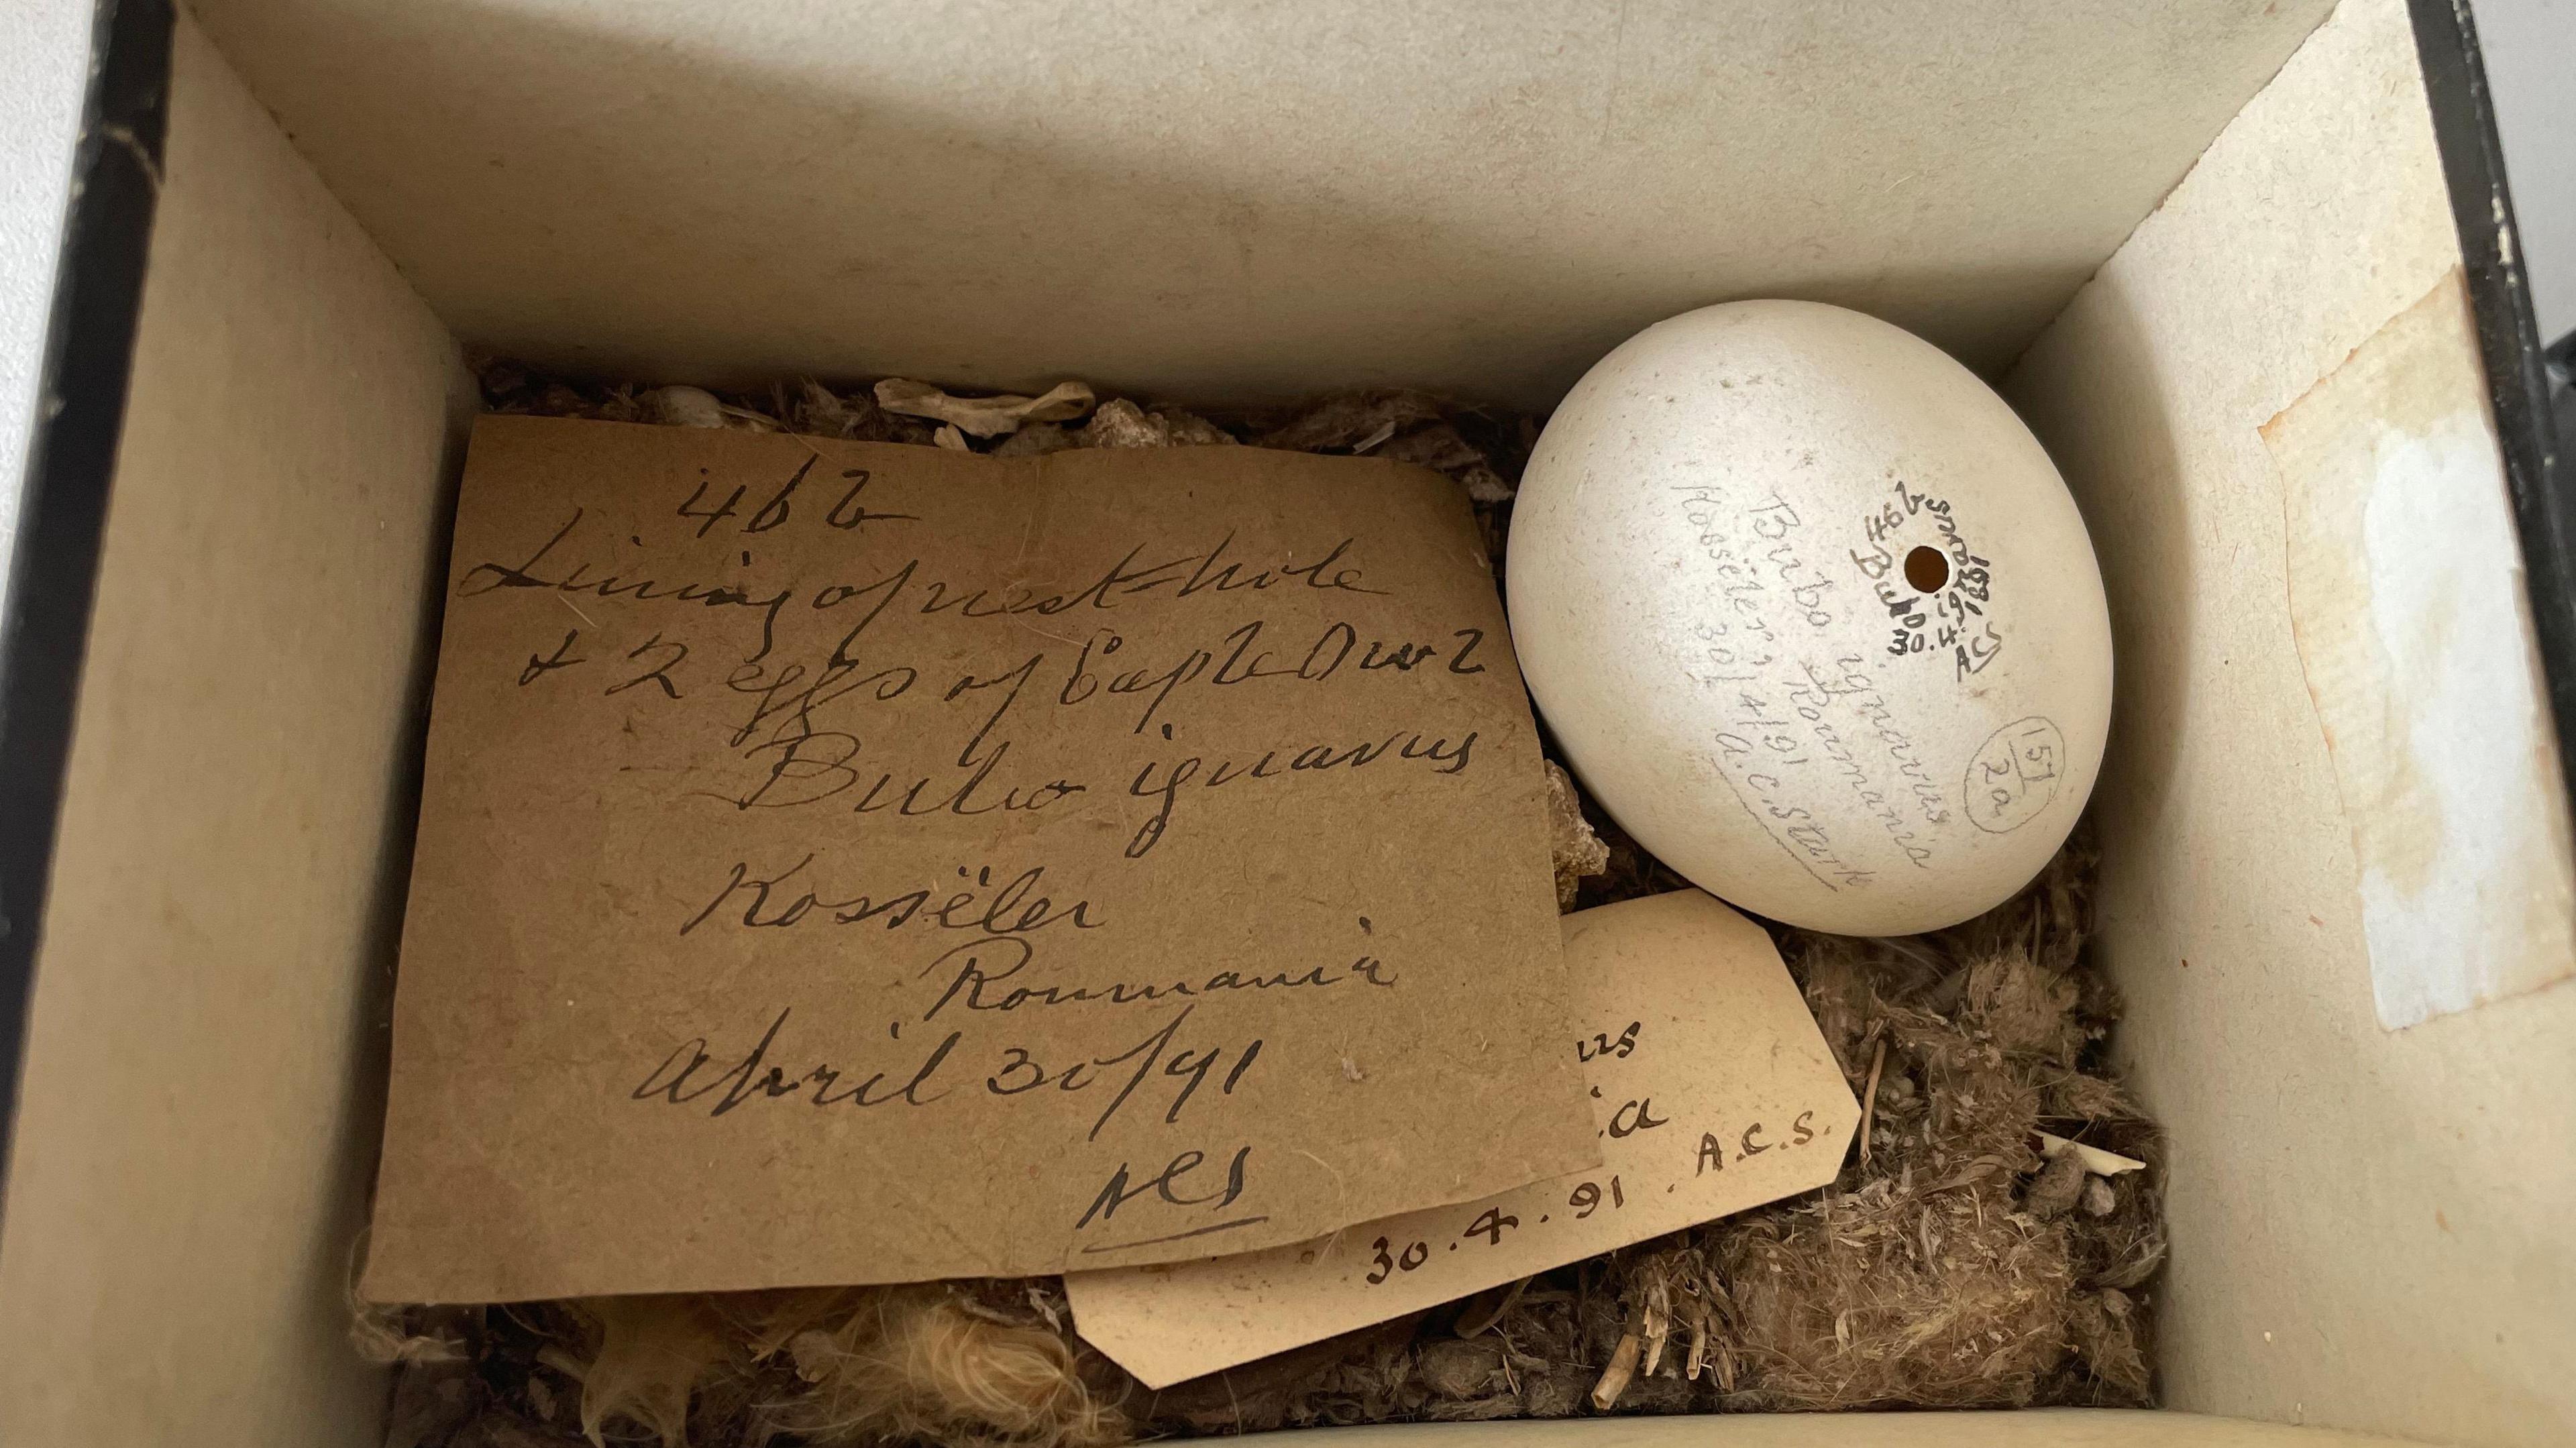 462
Lining of nest hole
+ 2 eggs of Eagle Owl
Bubo ignavus
Kossëler
Roumania
April 30/91
ACS
us
ia
30.4.91. A.C.S.
462
Bubo ignavus
30.4.1891
ACS
Bubo ignavus
Kossëler Roumania
30/4/91
A.C. Stark
157
2a